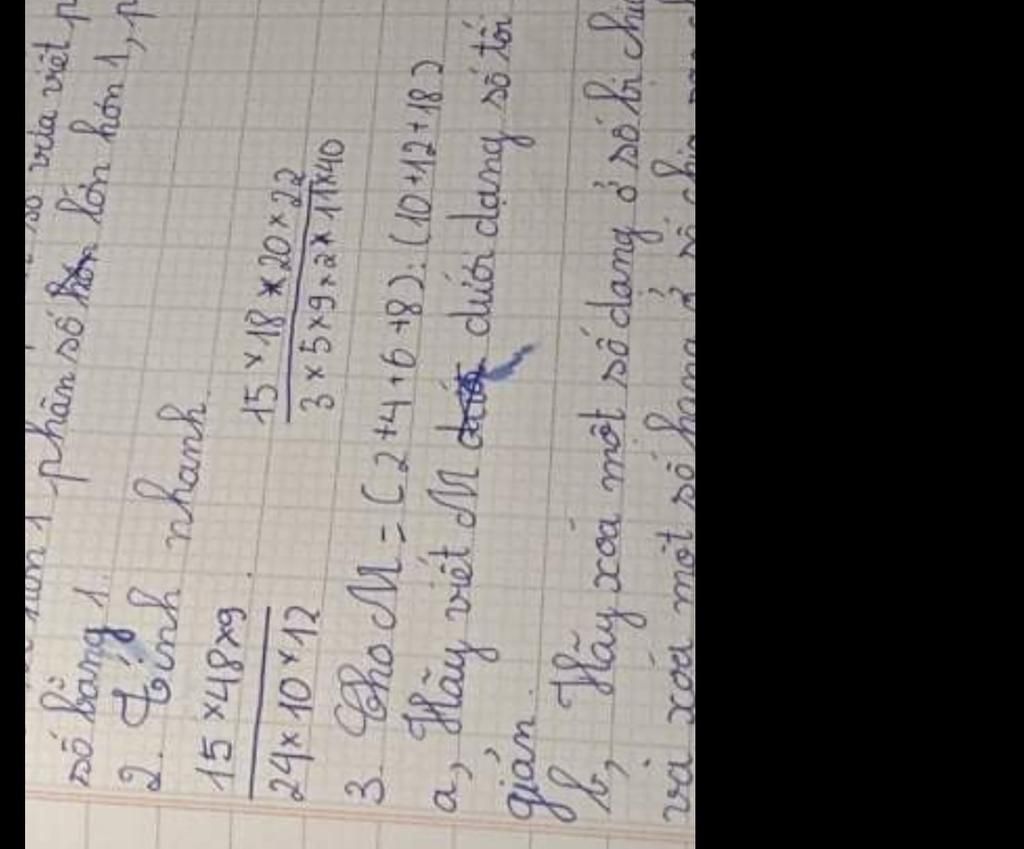 hơn 1 phân số lớn hơn 1, p
số bằng 1.
2. Tính nhanh
15 × 48 × 9 / 24 × 10 × 12
15 × 18 × 20 × 22 / 3 × 5 × 9 × 2 × 11 × 40
3. Cho M = (2+4+6+8) : (10+12+18)
a, Hãy viết M dưới dạng số tối
giản.
b, Hãy xoá một số dạng ở số bị chia
và xóa một số hạng ở số chia